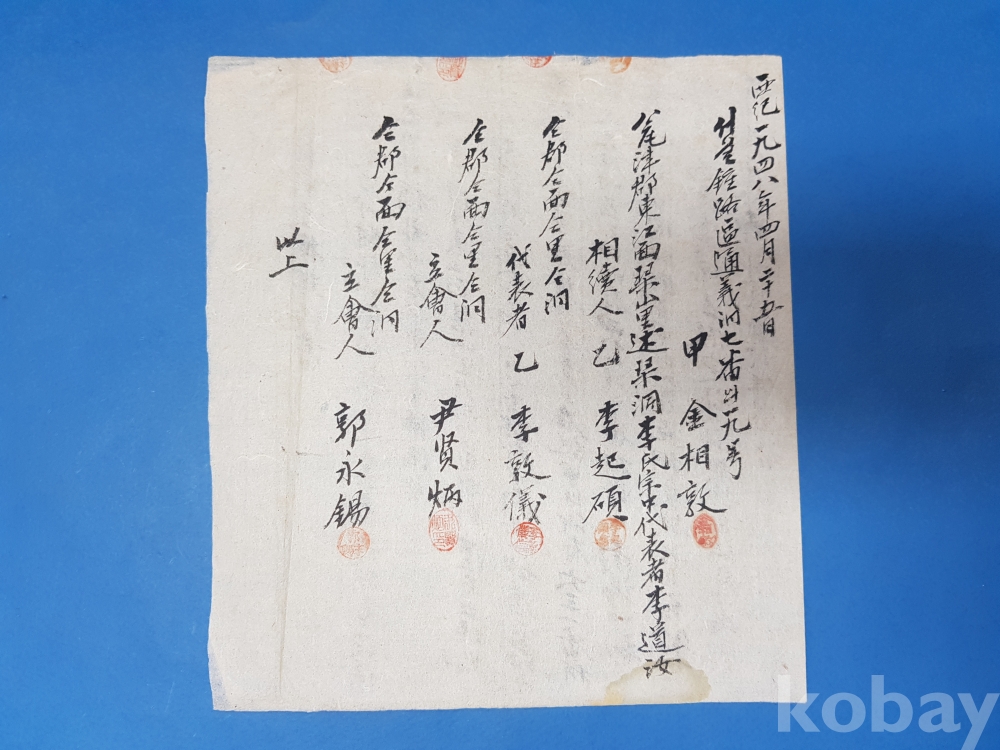 西紀一九四八年四月二十日
서울鍾路區通義洞七番의一九号
甲 金相敦
瓮津郡東江面琹山里琹洞李氏宗中代表者李道汝
相續人 乙 李起碩
仝郡仝面仝里仝洞
代表者 乙 李敦儀
仝郡仝面仝里仝洞
立會人 尹賢炳
仝郡仝面仝里仝洞
立會人 郭永錫
以上
kobay